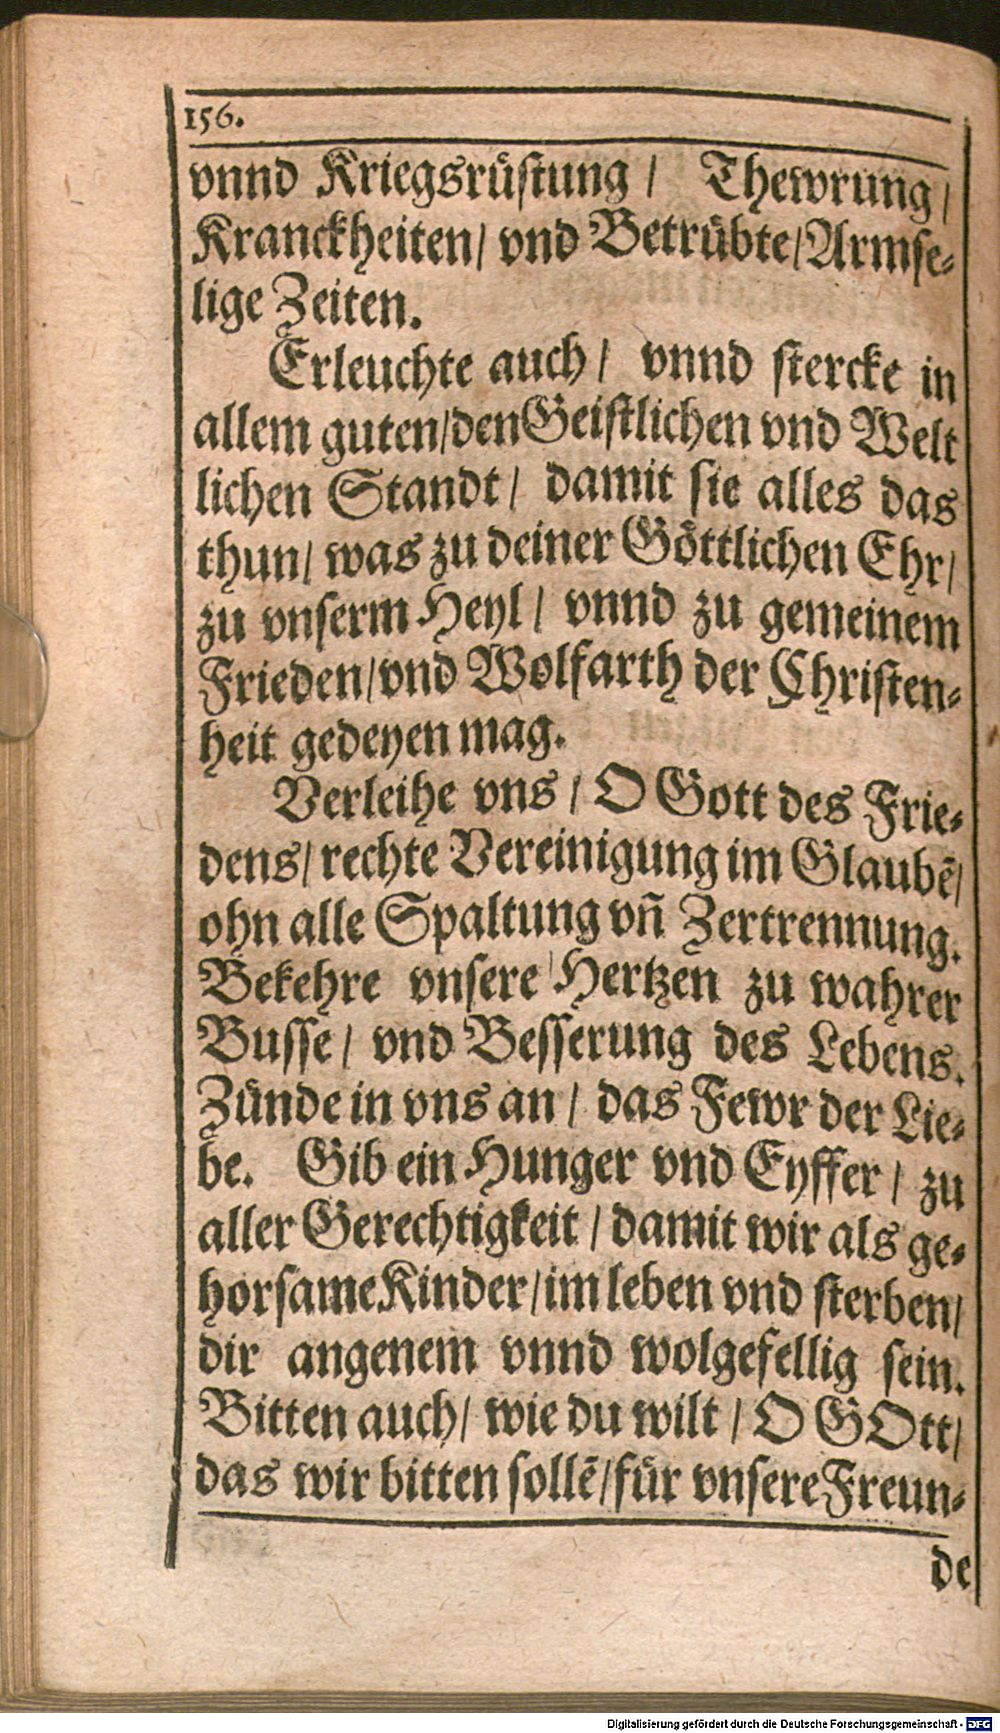 156.
vnnd Kriegsrüstung / Thewrung /
Kranckheiten / vnd Betrübte / Armse-
lige Zeiten.
Erleuchte auch / vnnd stercke in
allem guten / den Geistlichen vnd Welt
lichen Standt / damit sie alles das
thun / was zu deiner Göttlichen Ehr /
zu vnserm Heyl / vnnd zu gemeinem
Frieden / vnd Wolfarth der Christen-
heit gedeyen mag.
Verleihe vns / O Gott des Frie-
dens / rechte Vereinigung im Glaubẽ /
ohn alle Spaltung vñ Zertrennung.
Bekehre vnsere Hertzen zu wahrer
Busse / vnd Besserung des Lebens.
Zünde in vns an / das Fewr der Lie-
be. Gib ein Hunger vnd Eyffer / zu
aller Gerechtigkeit / damit wir als ge-
horsame Kinder / im leben vnd sterben /
dir angenem vnnd wolgefellig sein.
Bitten auch / wie du wilt / O GOtt /
das wir bitten sollẽ / für vnsere Freun-
de
Digitalisierung gefördert durch die Deutsche Forschungsgemeinschaft - DFG